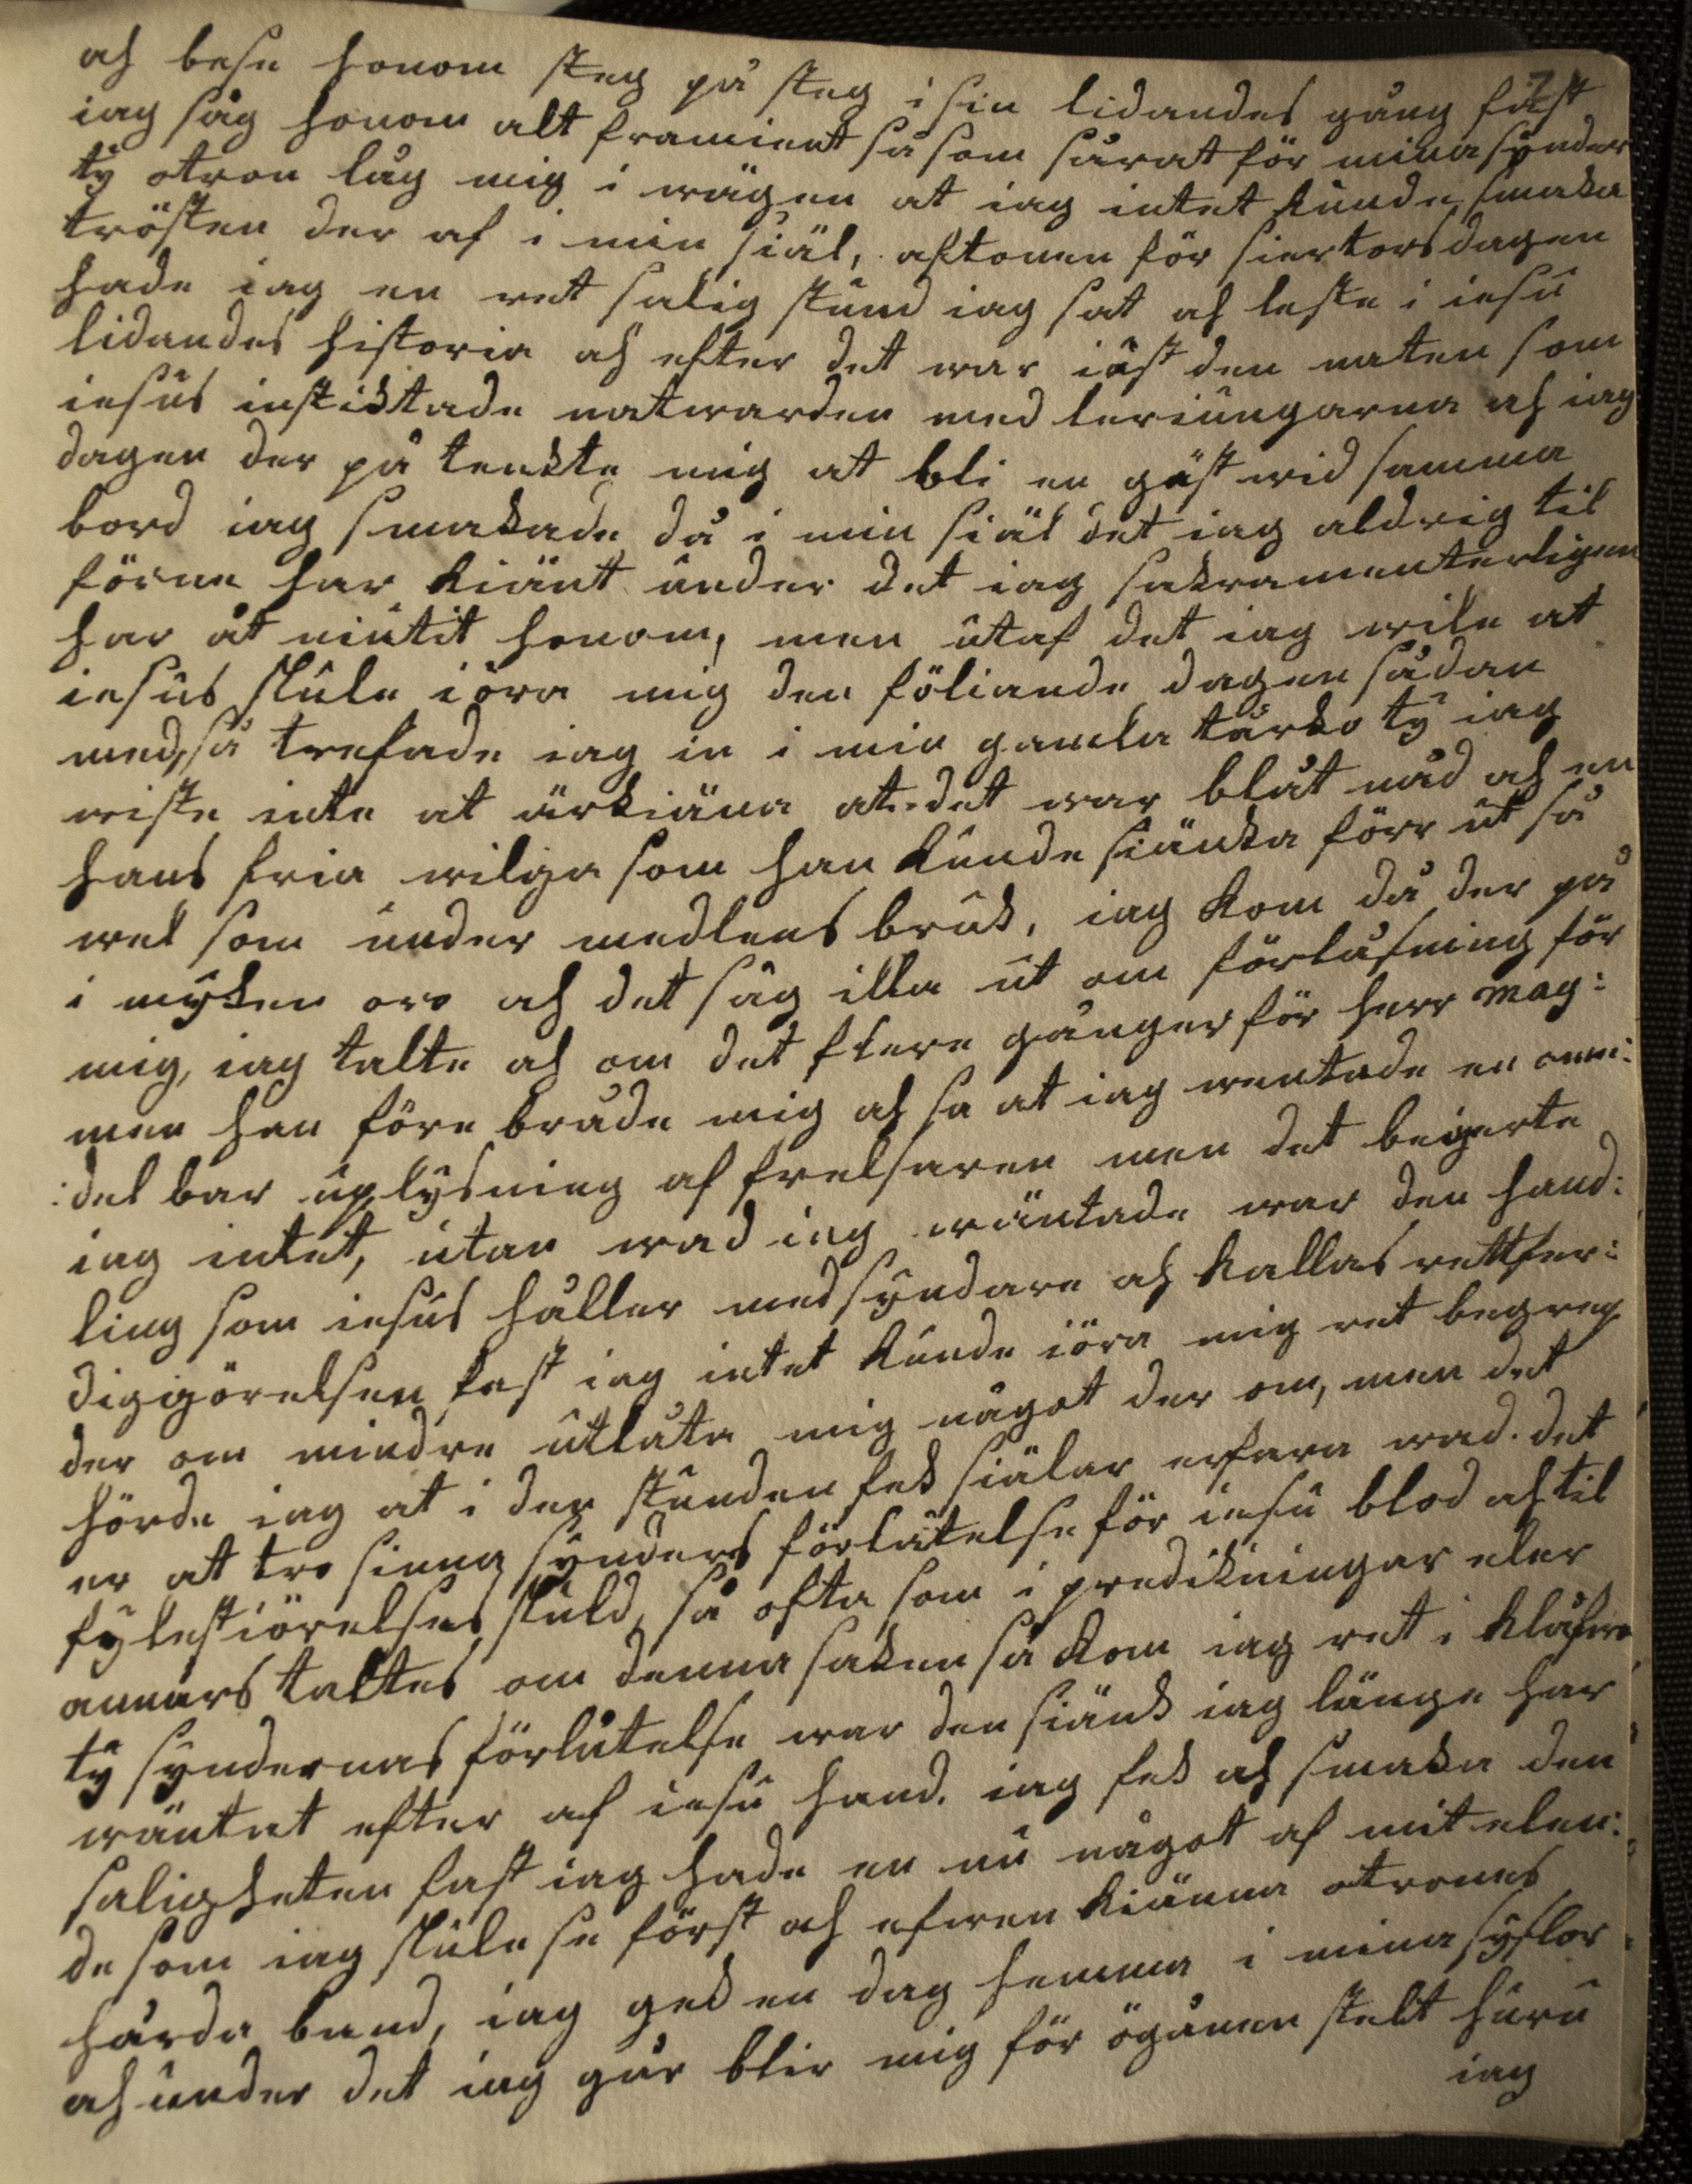 ah bese honom steg på steg i sin lidandes gång fast
iag såg honom alt framient så som sårat för mina synder
ty otron låg mig i wägen at iag intet kunde smaka
trösten der af i min siäl, aftonen för siertorsdagen
hade iag en ret salig stund iag sat ah leste i iesu
lidandes historia ah efter det war iust den naten som
iesus instiktade natwarden med leriungarna ah iag
dagen der på tenkte mig at bli en gäst wid samma
bord iag smakade då i min siäl det iag aldrig til
förne har kiänt under det iag sakramenterligen
har åt niutit honom, men utaf det iag wile at
iesus skule iöra mig den föliande dagen sådan
med, så trefade iag in i min gamla tårko ty iag
wiste inte at ärkiäna at det war blåt nåd ah en
hans fria wilja som han kunde siänka förr ut så
wel som under medlens bruk, iag kom då der på
i myken oro ah det såg illa ut om förlåsning för
mig, iag talte ah om det flere gånger för herr mag:
men han före bråde mig ah sa at iag wentade en ome:
:del bar uplysning af frelsaren men det beigerte
iag intet, utan wad iag wäntade war den hand:
ling som iesus håller med syndare ah kallas rettfer:
diggörelsen fast iag intet kunde iöra mig ret begrep
der om mindre utlåta mig något der om, men det
hörde iag at i den stunden fek siälar erfara wad det
er at tro sinna synders förlåtelse för iesu blod ah til
fylestiörelses skuld, så ofta som i predikningar eler
annars taltes om denna saken så kom iag ret i klåfwe
ty syndernas förlåtelse war den siänk iag länge har
wäntat efter af iesu hand. iag fek ah smaka den
saligheten fast iag hade en nu något af mit elen:
de som iag skule se först ah efwen kiänna otrones
hårda band, iag gek en dag hemma i mina syslor
ah under det iag går blir mig för ögånen stelt huru
iag